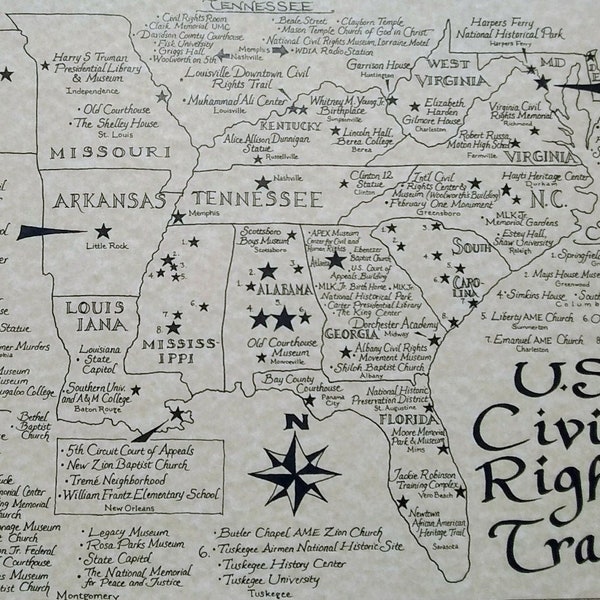 TENNESSEE
• Civil Rights Room
• Clark Memorial UMC
• Davidson County Courthouse
• Fisk University
• Griggs Hall
• Woolworth on 5th
Nashville
Memphis
• Beale Street • Clayborn Temple
• Mason Temple Church of God in Christ
• National Civil Rights Museum, Lorraine Motel
• WDIA Radio Station
Harpers Ferry
National Historical Park
Harpers Ferry
MD
Harry S Truman
Presidential Library
& Museum
Independence
• Old Courthouse
• The Shelley House
St. Louis
MISSOURI
Louisville Downtown Civil
Rights Trail
• Muhammad Ali Center
Louisville
Garrison House
Huntington
WEST
VIRGINIA
Whitney M. Young Jr.
Birthplace
Simpsonville
Elizabeth
Harden
Gilmore House
Charleston
Virginia Civil
Rights Memorial
Richmond
KENTUCKY
Lincoln Hall,
Berea College
Berea
Robert Russa
Moton High School
Farmville
VIRGINIA
Alice Allison Dunnigan
Statue
Russellville
ARKANSAS
Little Rock
Nashville
TENNESSEE
Memphis
Clinton 12
Statue
Clinton
• Int'l Civil
Rights Center &
Museum (Woolworth's Building)
• February One Monument
Greensboro
Hayti Heritage Center
Durham
N.C.
• MLK Jr.
Memorial Gardens
• Estey Hall,
Shaw University
Raleigh
Scottsboro
Boys Museum
Scottsboro
• APEX Museum
Center for Civil and
Human Rights
Atlanta
Ebenezer
Baptist Church
• U.S. Court of
Appeals Building
• MLK Jr. Birth Home • MLK Jr.
National Historical Park
Carter Presidential Library
The King Center
SOUTH
CAROLINA
1. Springfield
Greenwood
2. Mays House Museum
Greenwood
4. • Simkins House • South
Columb
5. Liberty AME Church
Summerton
6. O
7. Emanuel AME Church
Charleston
ALABAMA
LOUISIANA
Louisiana
• State
Capitol
• Southern Univ.
and A&M College
Baton Rouge
MISSISSIPPI
Old Courthouse
Museum
Monroeville
GEORGIA
Dorchester Academy
Midway
• Albany Civil Rights
Movement Museum
• Shiloh Baptist Church
Albany
Bay County
Courthouse
Panama
City
National Historic
Preservation District
St. Augustine
FLORIDA
Moore Memorial
Park & Museum
Mims
Jackie Robinson
Training Complex
Vero Beach
Newtown
African American
Heritage Trail
Sarasota
N
U.S
Civi
Righ
Tra
Statue
mer Murders
ial
eum
ugaloo College
Bethel
Baptist
Church
• 5th Circuit Court of Appeals
• New Zion Baptist Church
• Tremé Neighborhood
• William Frantz Elementary School
New Orleans
• Legacy Museum
• Rosa Parks Museum
• State Capitol
• The National Memorial
for Peace and Justice
Montgomery
6.
• Butler Chapel AME Zion Church
• Tuskegee Airmen National Historic Site
• Tuskegee History Center
• Tuskegee University
Tuskegee